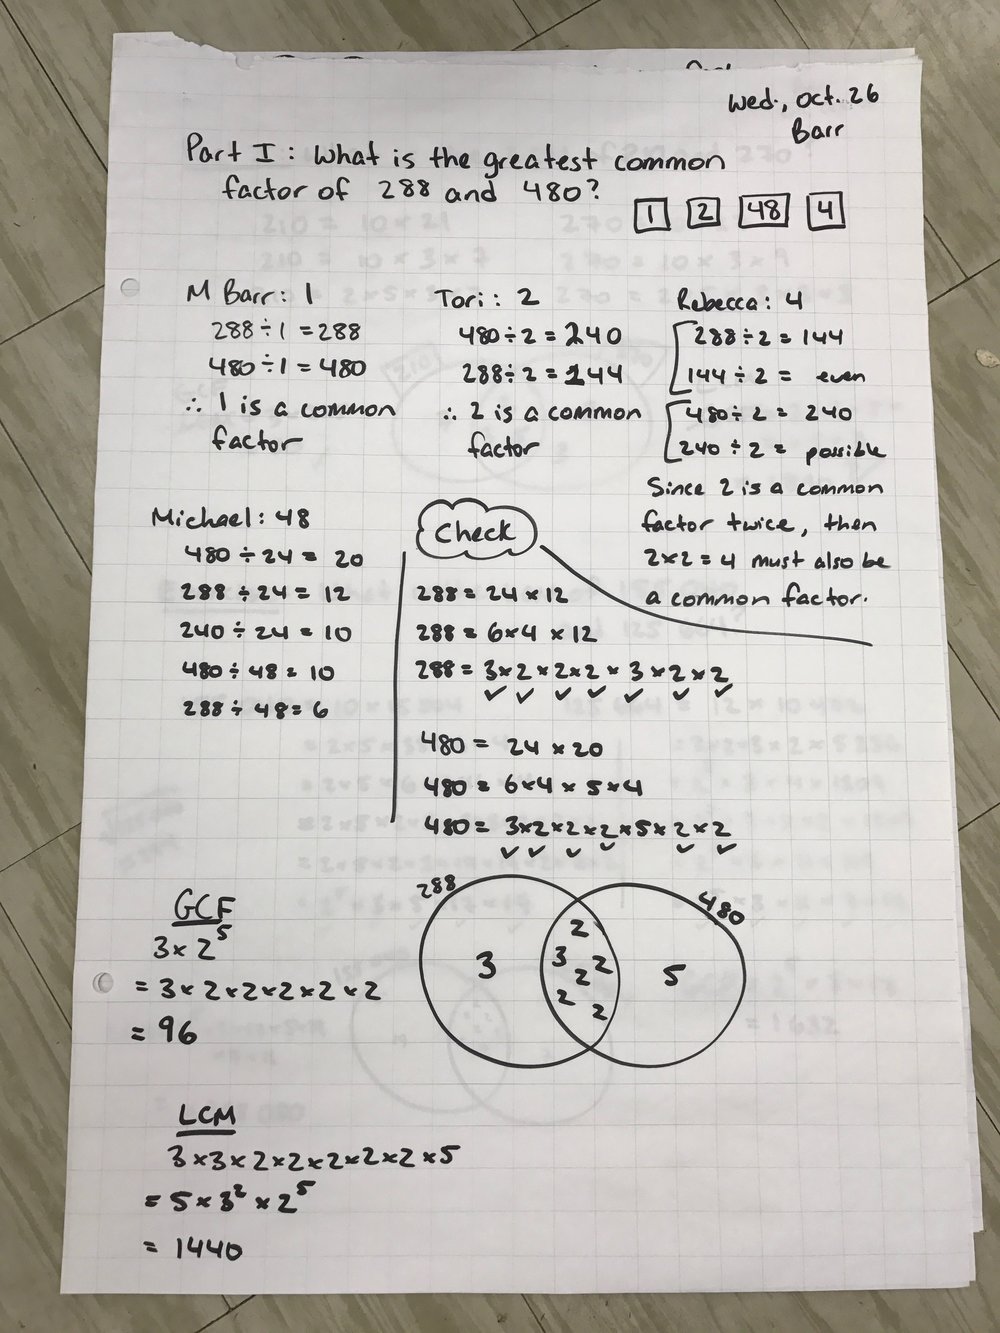 Wed., Oct. 26
Barr
Part I: What is the greatest common
factor of 288 and 480?
1 2 48 4
M Barr: 1
288÷1 = 288
480÷1 = 480
∴ 1 is a common
factor
Tori: 2
480÷2 = 240
288÷2 = 144
∴ 2 is a common
factor
Rebecca: 4
288÷2 = 144
144÷2 = even
480÷2 = 240
240÷2 = possible
Since 2 is a common
factor twice, then
2×2=4 must also be
a common factor.
Michael: 48
480÷24 = 20
288÷24 = 12
240÷24 = 10
480÷48 = 10
288÷48 = 6
Check
288 = 24×12
288 = 6×4×12
288 = 3×2×2×2×3×2×2
✓ ✓ ✓ ✓ ✓ ✓ ✓
480 = 24×20
480 = 6×4×5×4
480 = 3×2×2×2×5×2×2
✓ ✓ ✓ ✓ ✓ ✓
GCF
3×2⁵
= 3×2×2×2×2×2
= 96
288
480
3
2
3 2
2
2
2
5
LCM
3×3×2×2×2×2×2×5
= 5×3²×2⁵
= 1440